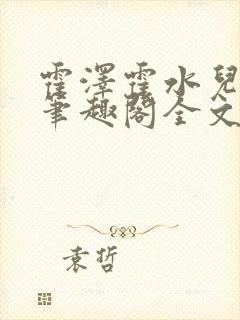 霍澤霍水兒
筆趣閣全文
袁哲